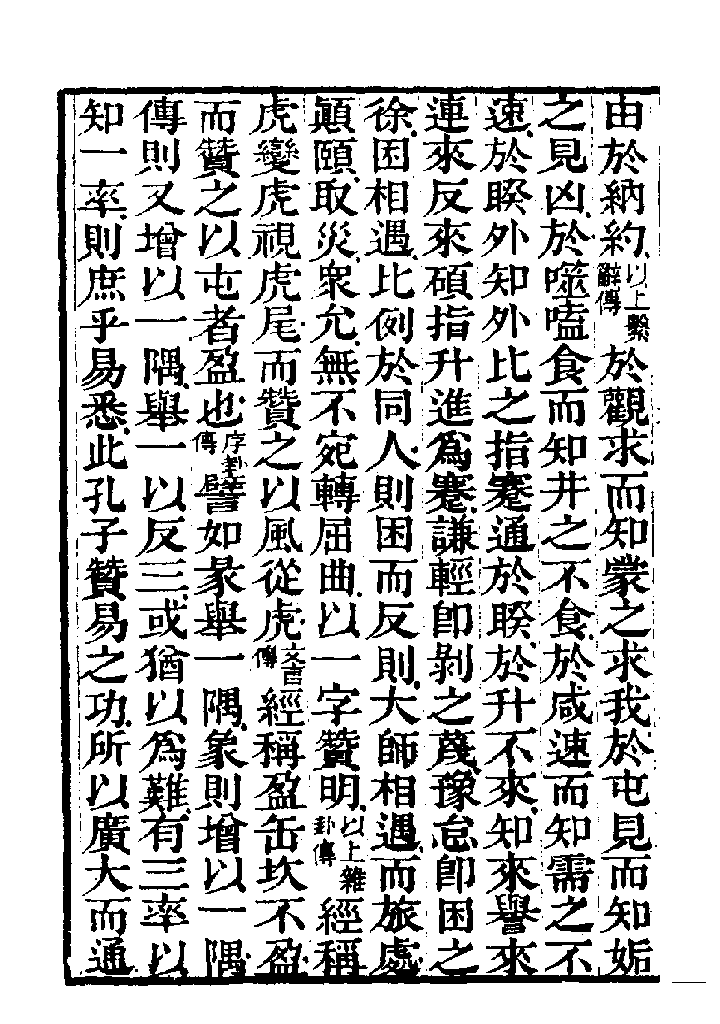 由於納約以上繫辭傳於觀求而知蒙之求我於屯見而知姤
之見凶於噬嗑食而知井之不食於咸速而知需之不
速於睽外知外比之指蹇通於睽於升不來知來譽來
連來反來碩指升進爲蹇謙輕卽剝之蔑豫怠卽困之
徐困相遇比例於同人則困而反則大師相遇而旅處
顚頤取災衆允無不宛轉屈曲以一字贊明以上雜卦傳經稱
虎變虎視虎尾而贊之以風從虎文言傳經稱盈缶坎不盈
而贊之以屯者盈也序卦傳譬如彖舉一隅象則增以一隅
傳則又增以一隅舉一以反三或猶以爲難有三率以
知一率則庶乎易悉此孔子贊易之功所以廣大而通